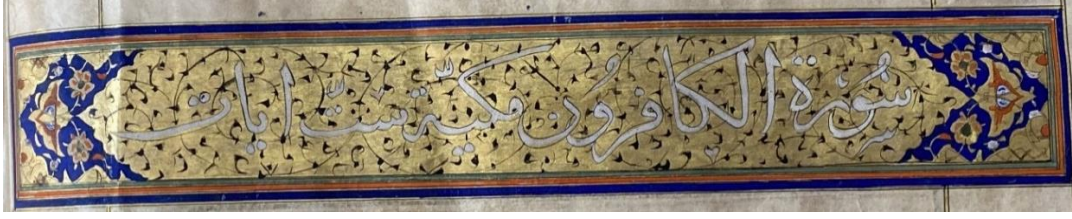 سُورَة الكافرُون مكيّة ستّ ايات